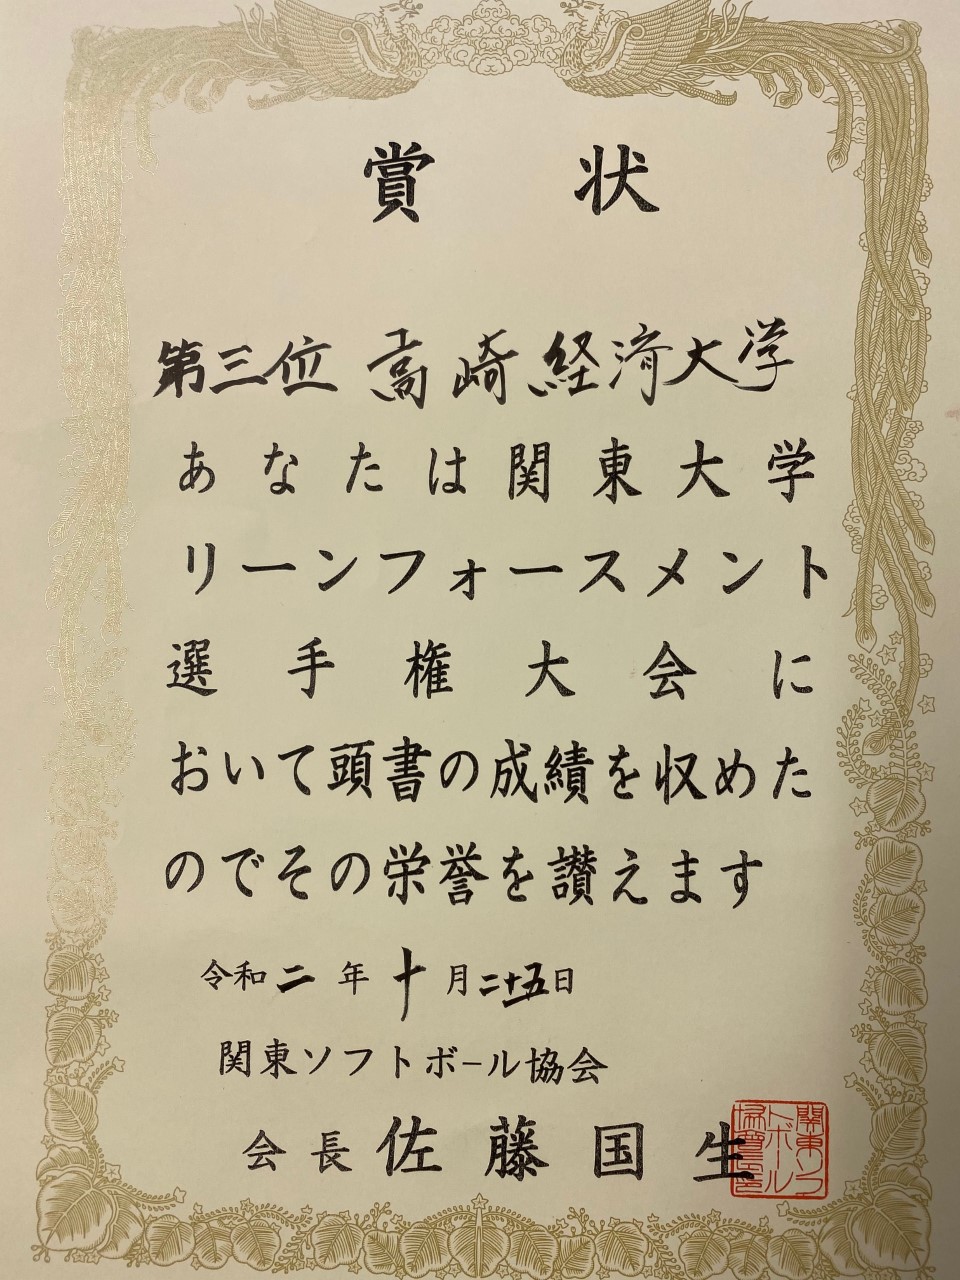 賞状
第三位 高崎経済大学
あなたは関東大学
リーンフォースメント
選手権大会に
おいて頭書の成績を収めた
のでその栄誉を讃えます
令和二年十月二十五日
関東ソフトボール協会
会長 佐藤国生